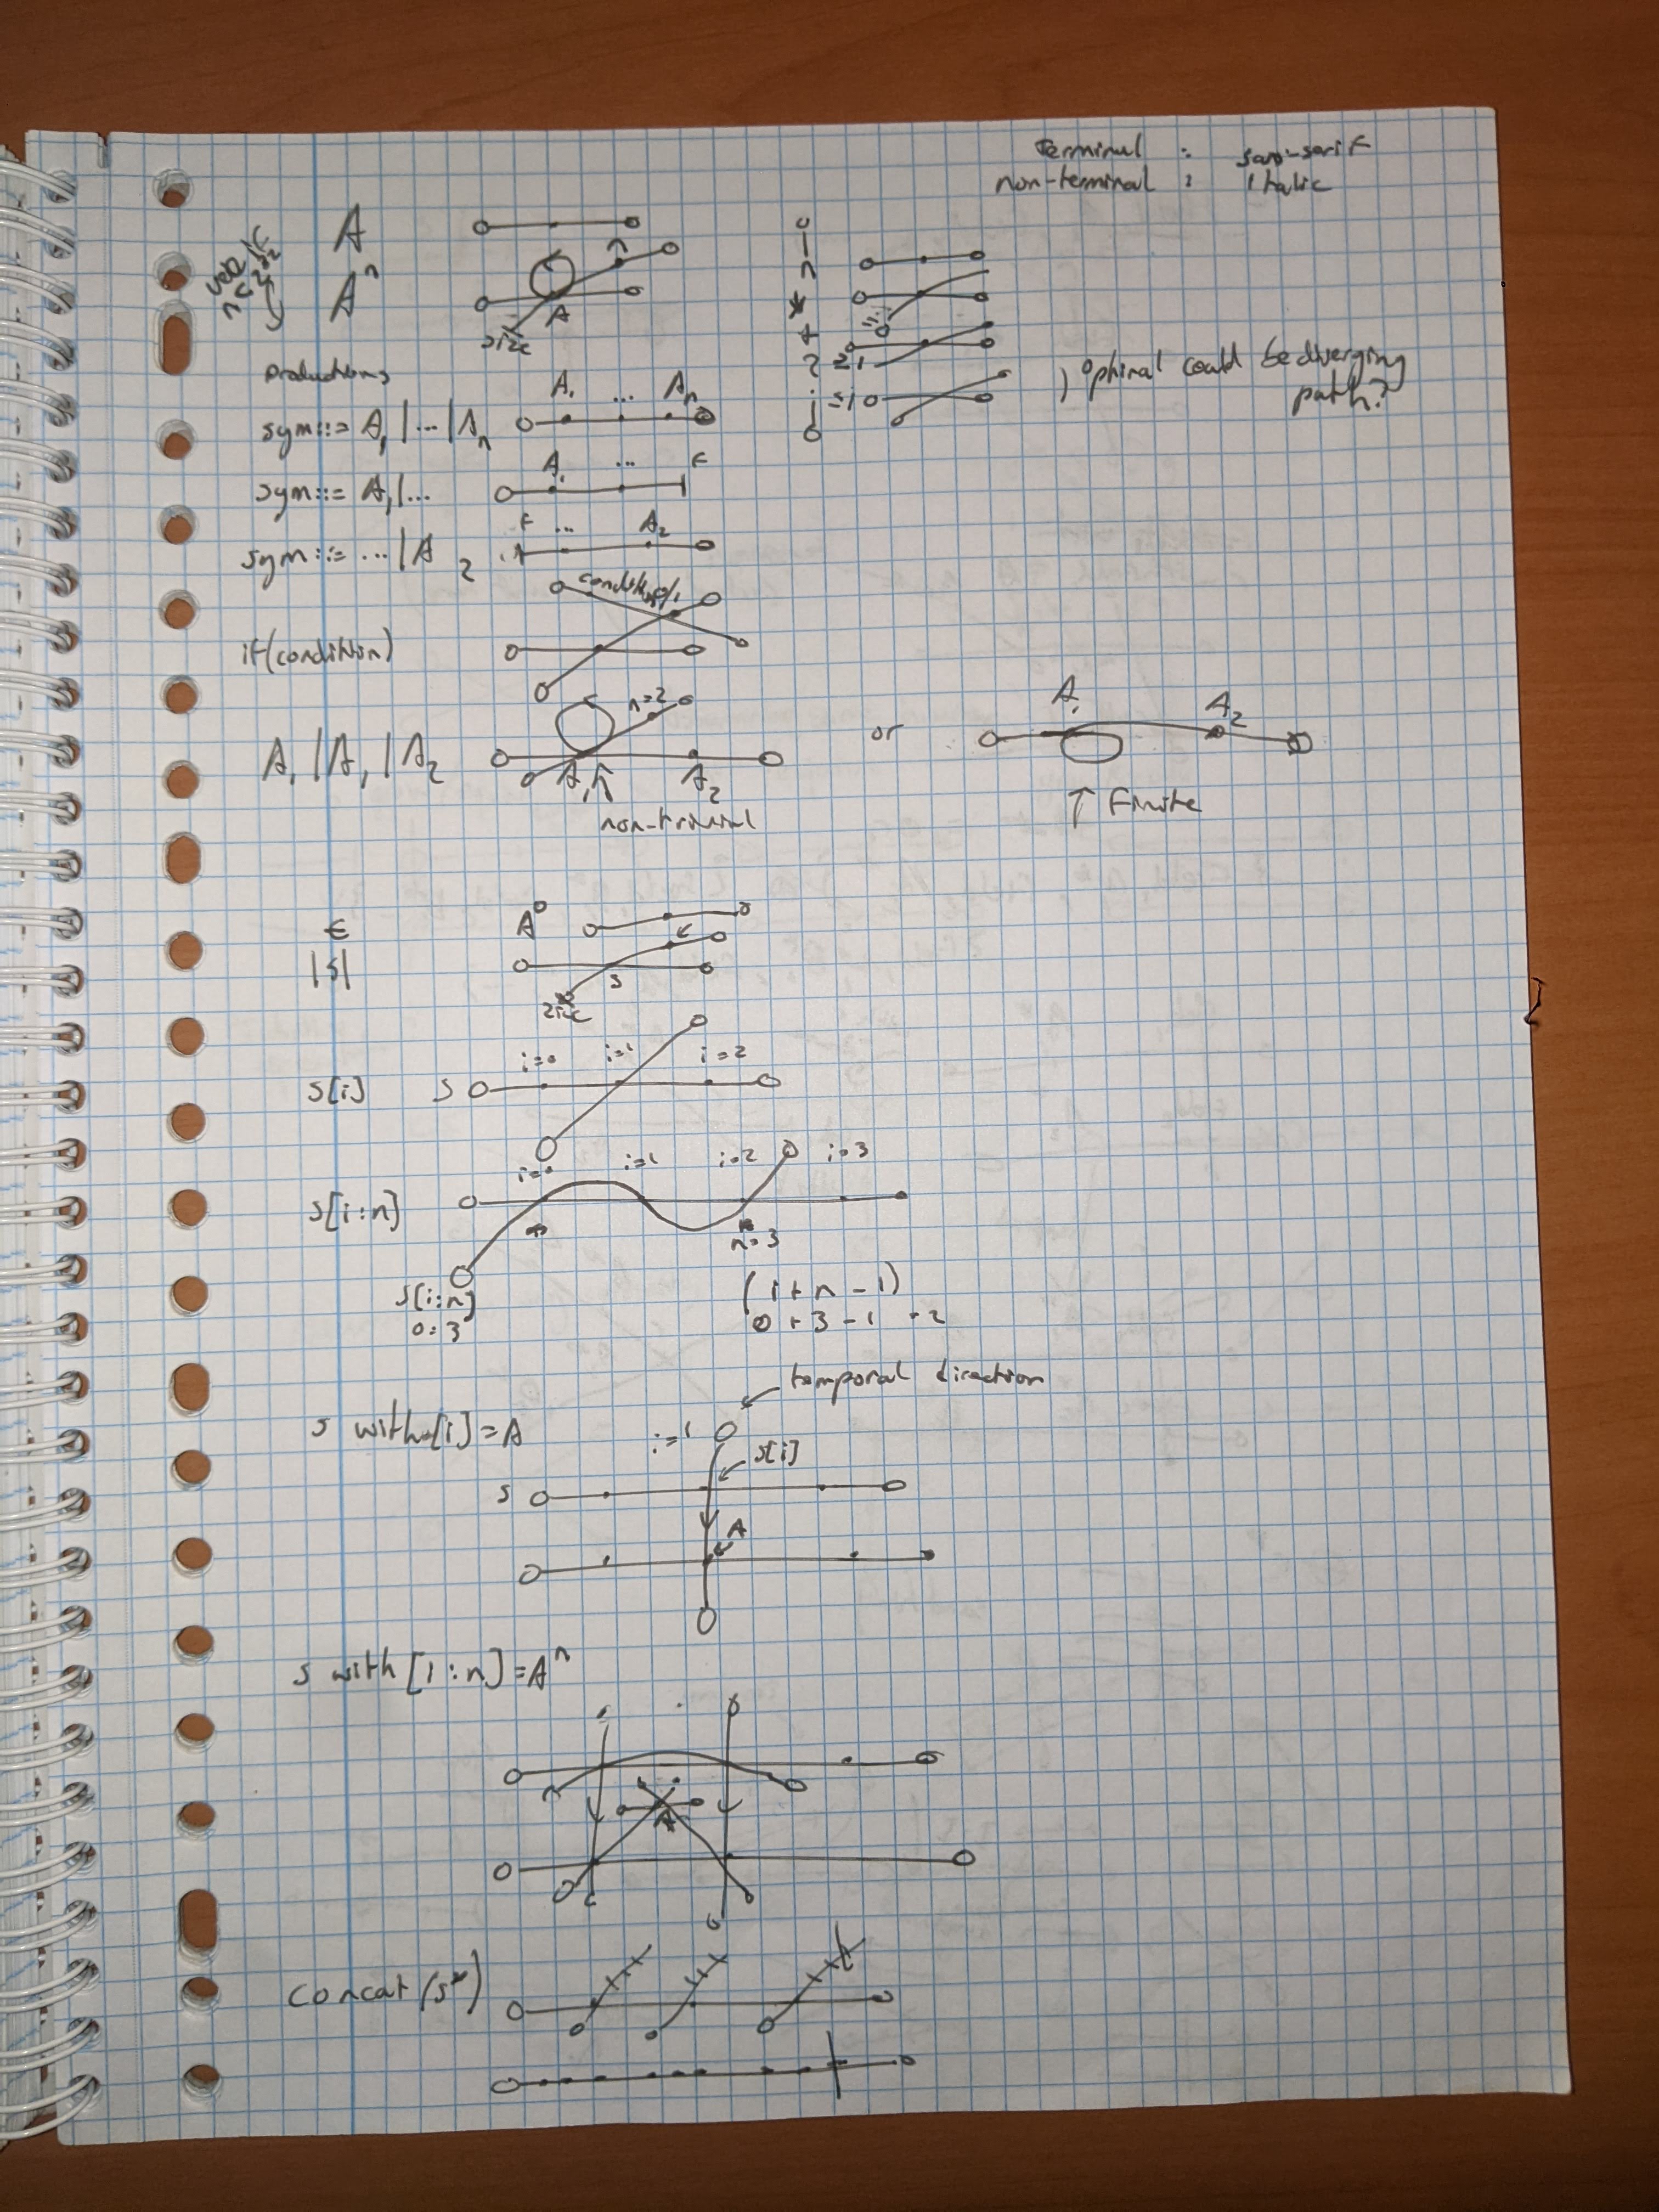 terminal : sans-serif
non-terminal : italic
A
Aⁿ
n
A
size
o
n
*
+
?
≥1
≤1
) optional could be diverging
path?
Productions
A₁ ... Aₙ
sym ::= A₁ | ... | Aₙ
A₁ ... F
sym ::= A₁ | ...
F ... A₂
sym ::= ... | A₂
condition 0/1
if (condition)
n=2
A₁ | A₁ | A₂
A₁ ↑ A₂
non-trivial
or
A₁ A₂
↑ Finite
ϵ
A⁰
|s|
s
size
i=0 i=1 i=2
s[i] s
i=0 i=1 i=2 i=3
s[i:n]
n=3
s[i:n]
0:3
(i + n - 1)
0 + 3 - 1 = 2
temporal direction
s with [i] = A
i=1
s[i]
s
A
s with [i:n] = Aⁿ
A
concat (s*)